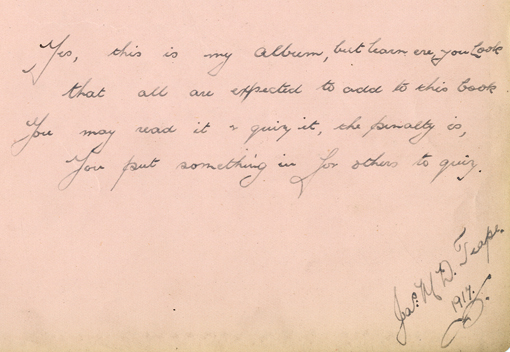 Yes, this is my album, but learn ere you look
that all are expected to add to this book
You may read it & quiz it, the penalty is,
You put something in for others to quiz.
Jas. McD. Teape.
1917.